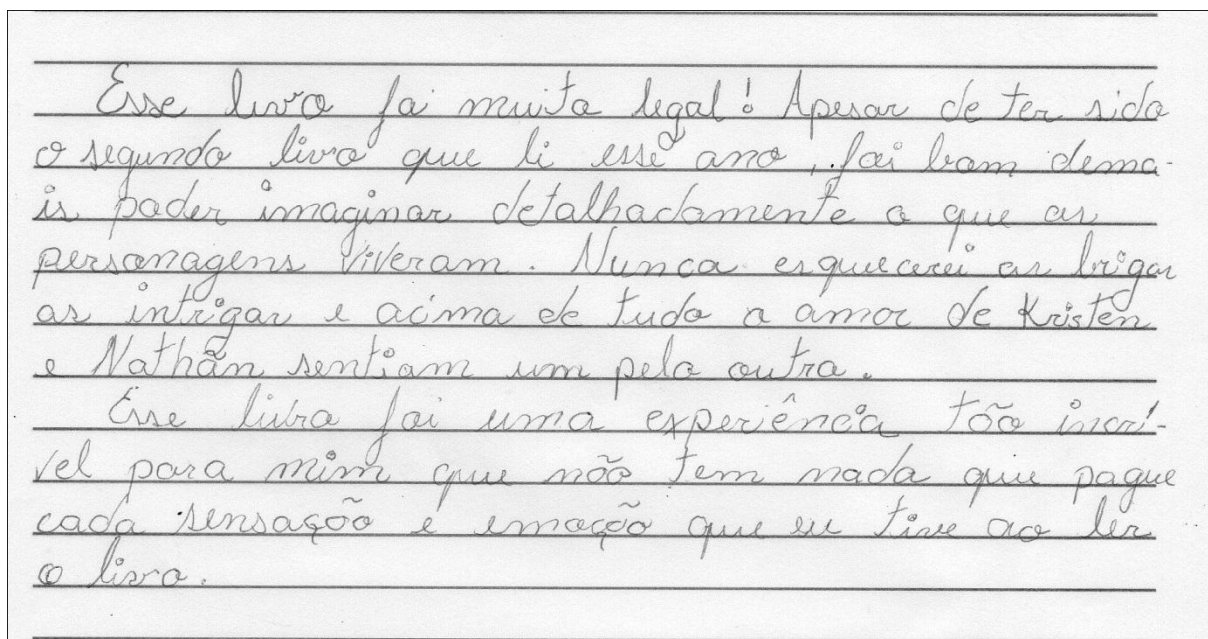 Esse livro foi muito legal! Apesar de ter sido
o segundo livro que li esse ano, foi bom dema-
is poder imaginar detalhadamente o que os
personagens viveram. Nunca esquecerei as brigas
as intrigas e acima de tudo o amor de Kristen
e Nathãn sentiam um pelo outro.
Esse livro foi uma experiência tão incrí-
vel para mim que não tem nada que pague
cada sensação e emoção que eu tive ao ler
o livro.